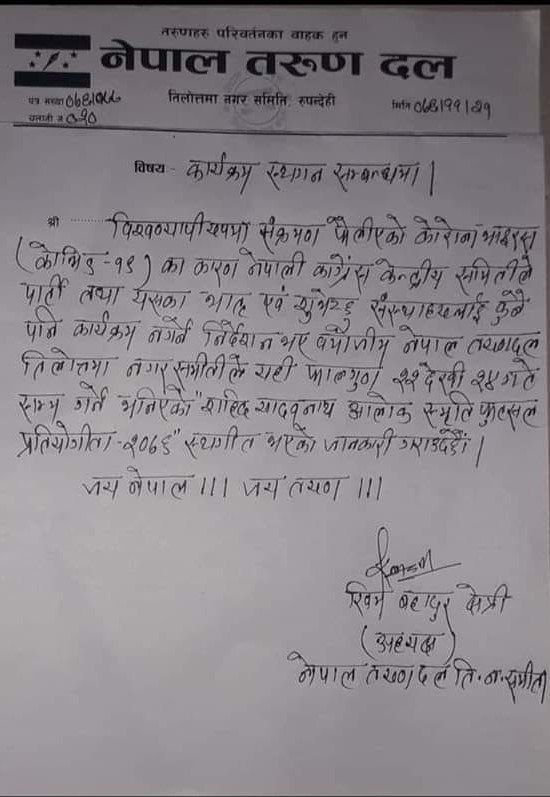 तरुणहरु परिवर्तनका वाहक हुन
नेपाल तरुण दल
तिलोत्तमा नगर समिति, रुपन्देही
पत्र संख्या ०७६/०७७
मिति ०७६/११/२१
चलानी नं ०२०
विषय - कार्यक्रम स्थगन सम्बन्धमा |
श्री ........... विश्वव्यापी रुपमा संक्रमण फैलीएको कोरोना भाइरस
(कोभिड - १९) का कारण नेपाली काग्रेंस केन्द्रीय समितीले
पार्टी तथा यसका भातृ एवं शुभेच्छु संस्थाहरुलाई कुनै
पनि कार्यक्रम नगर्न निर्देशन भए बमोजीम नेपाल तरुणदल
तिलोत्तमा नगर समीतीले यही फाल्गुण २२ देखी २४ गते
सम्म गर्ने भनिएको "शहिद यादवनाथ आलोक स्मृति फुत्सल
प्रतियोगीता - २०७६" स्थगीत भएको जानकारी गराउँदछौं |
जय नेपाल ||| जय तरुण |||
खिम बहादुर क्षेत्री
(अध्यक्ष)
नेपाल तरुण दल ति. न. समीती